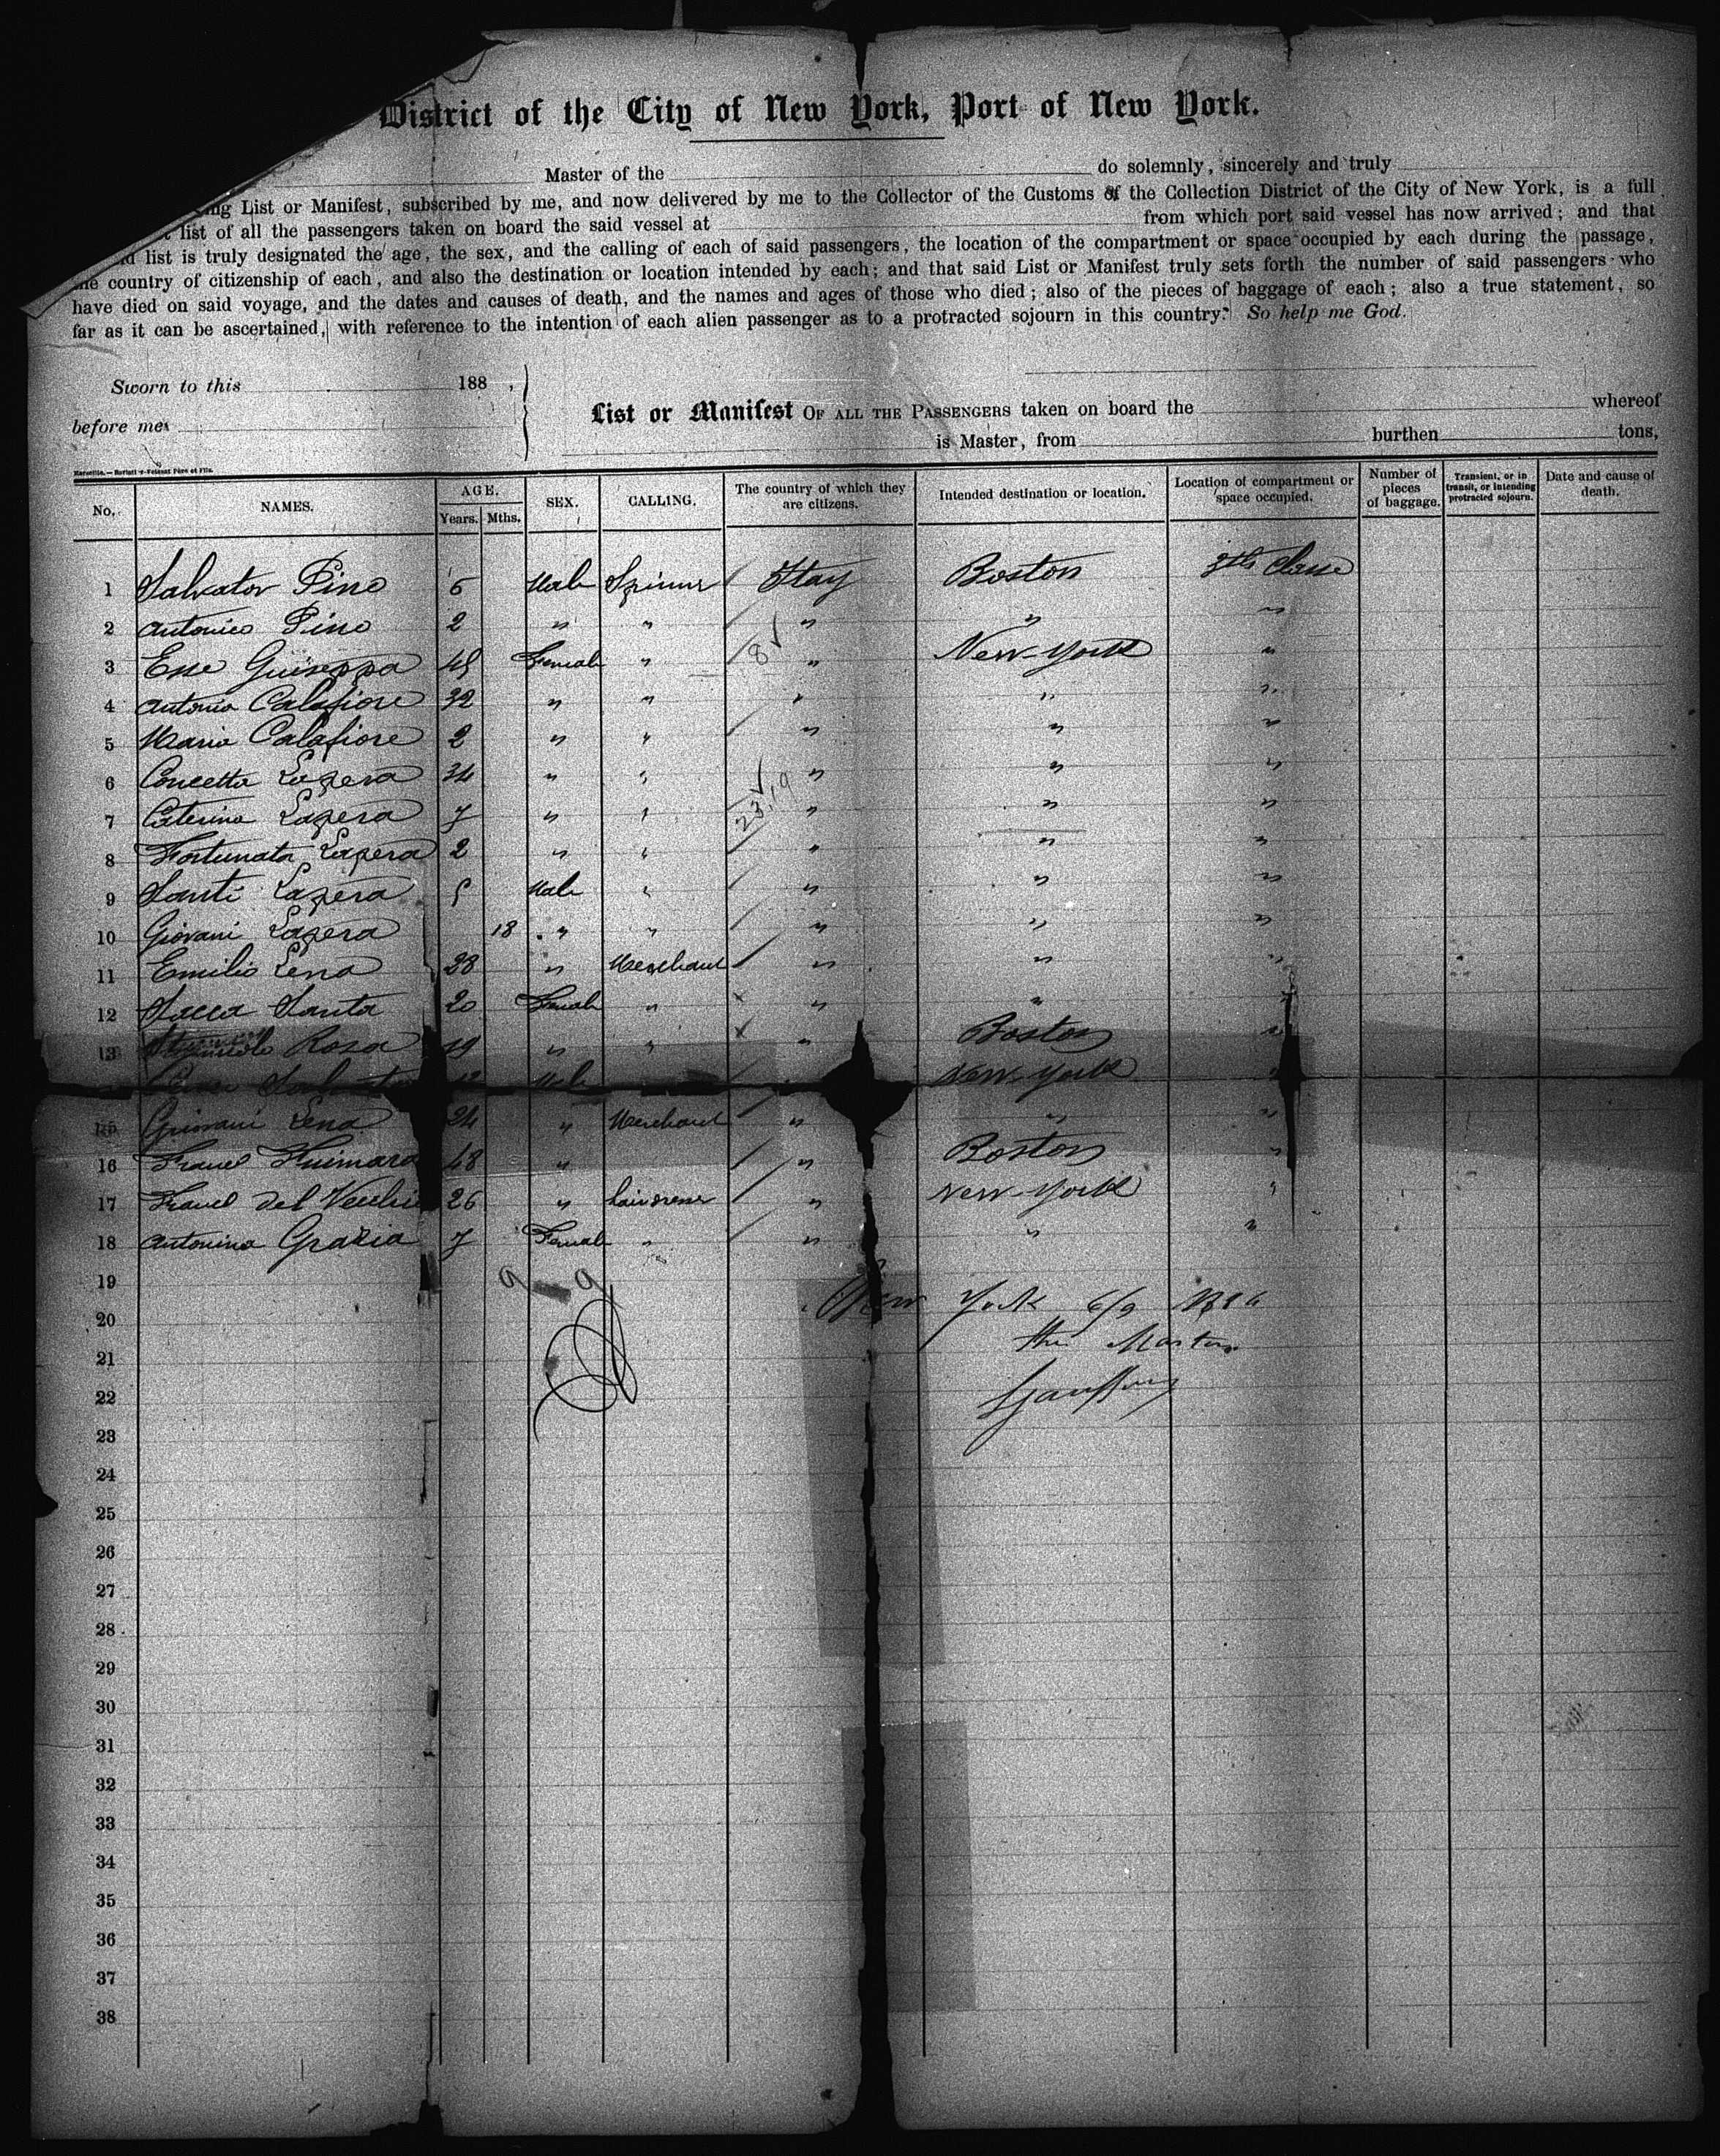 District of the City of New York, Port of New York.
Master of the do solemnly, sincerely and truly
ing List or Manifest, subscribed by me, and now delivered by me to the Collector of the Customs of the Collection District of the City of New York, is a full
list of all the passengers taken on board the said vessel at from which port said vessel has now arrived; and that
list is truly designated the age, the sex, and the calling of each of said passengers, the location of the compartment or space occupied by each during the passage,
the country of citizenship of each, and also the destination or location intended by each; and that said List or Manifest truly sets forth the number of said passengers who
have died on said voyage, and the dates and causes of death, and the names and ages of those who died; also of the pieces of baggage of each; also a true statement, so
far as it can be ascertained, with reference to the intention of each alien passenger as to a protracted sojourn in this country. So help me God.
Sworn to this 188 ,
before me
List or Manifest OF ALL THE PASSENGERS taken on board the whereof
is Master, from burthen tons,
No. NAMES. AGE. Years. Mths. SEX. CALLING. The country of which they are citizens. Intended destination or location. Location of compartment or space occupied. Number of pieces of baggage. Transient, or in transit, or intending protracted sojourn. Date and cause of death.
1 Salvator Pino 6 Male Boston
2 Pino 2 " " " " "
3 Guiseppa Female " " New-York "
4 Antonia Calafiore 32 " " " " "
5 Maria Calafiore 2 " " " " "
6 Concetta Lazera 34 " " " " "
7 Caterina Lazera 7 " " " " "
8 Fortunata Lazera 2 " " " " "
9 Santi Lazera 5 Male " " " "
10 Giovani Lazera 18 " " " " "
11 Emilio Lena 28 " Merchant " " "
12 Sacca Santa 20 Female " " " "
13 Rosa 19 " " " Boston "
Male New-York "
15 Giovani Lena 24 " Merchant " " "
16 48 " " Boston "
17 del Vecchio 26 " " New-York "
18 Antonina Grazia 7 Female " " " "
19
20 New York 6/9
21 the Master
22
23
24
25
26
27
28
29
30
31
32
33
34
35
36
37
38